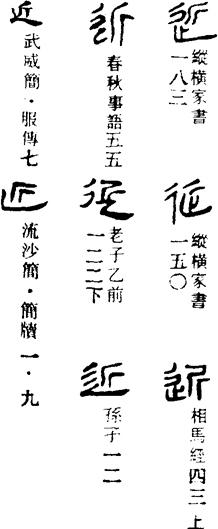 近
縱橫家書
一八三
近
縱橫家書
一五〇
近
相馬經四三上
近
春秋事語五五
近
老子乙前
一二二下
近
孫子一二
近
武威簡·服傳七
近
流沙簡·簡牘一·九